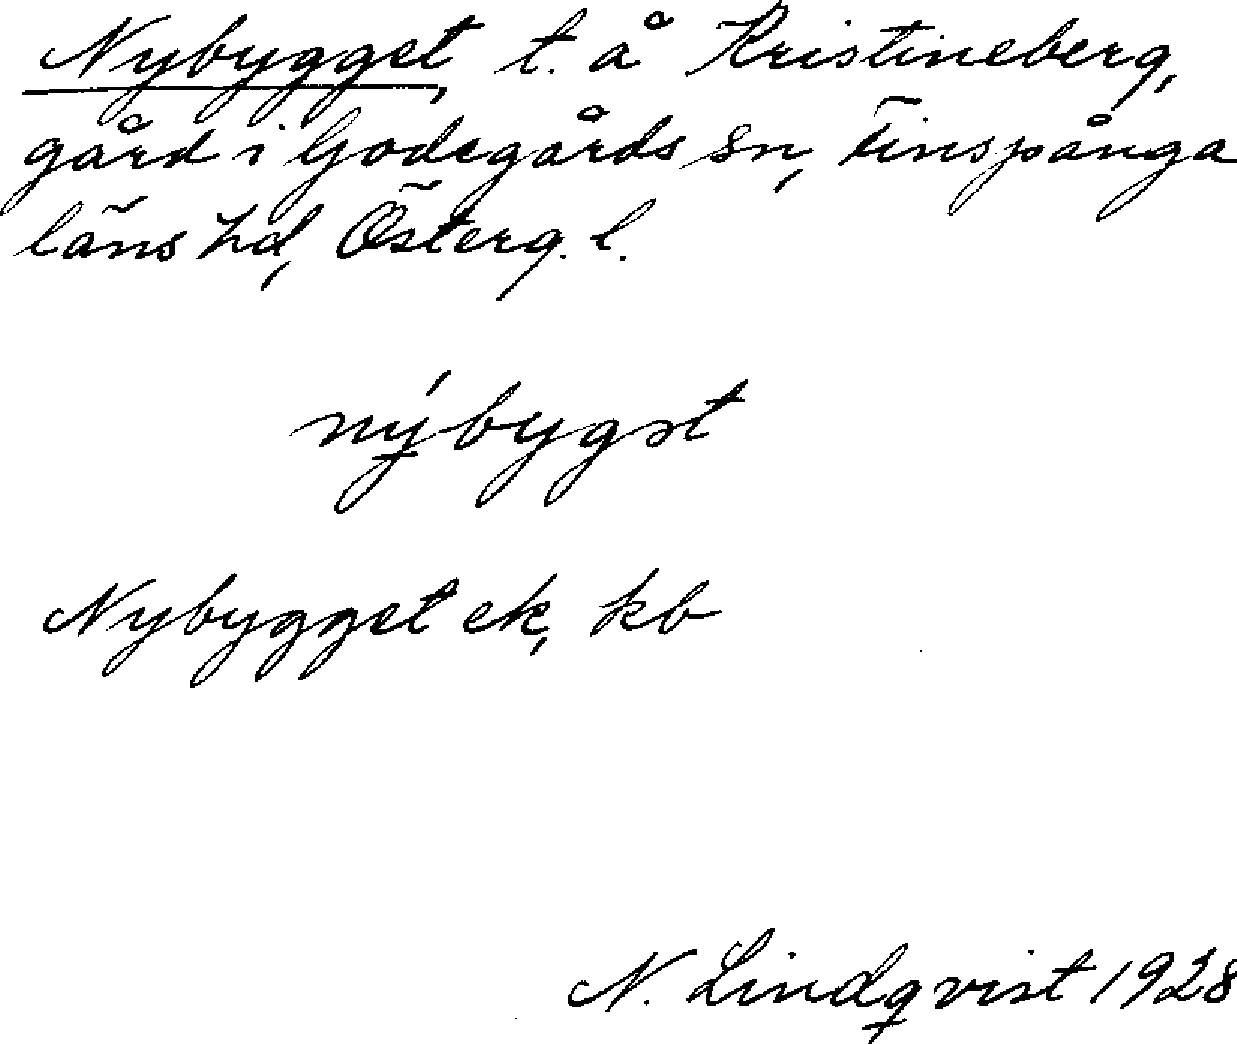 Nybygget, t. å Kristineberg,
gård i Godegårds sn, Finspånga
läns hd, Österg. l.
nýbygət
Nybygget ek, kb
N. Lindqvist 1928